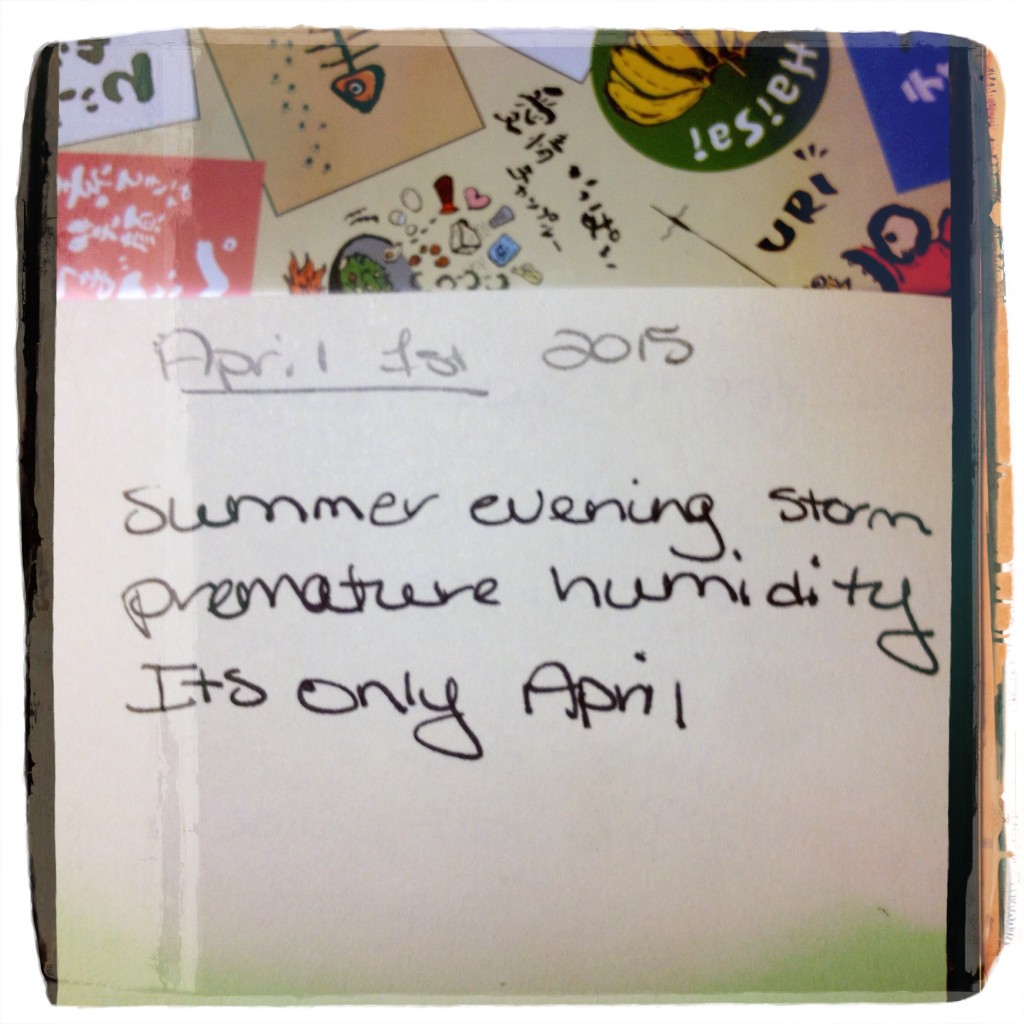 HaiSai
愛情いっぱい
チャンプルー
URI
April 1st 2015
Summer evening storm
premature humidity
Its only April